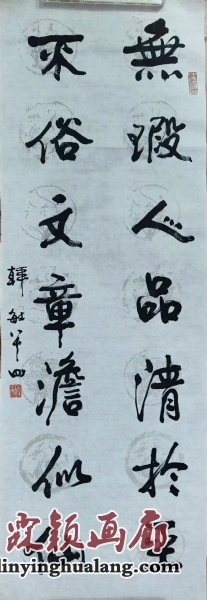 無瑕人品清於玉
不俗文章澹似仙
韓敏八十四
霖颖画廊
linyinghualang.com